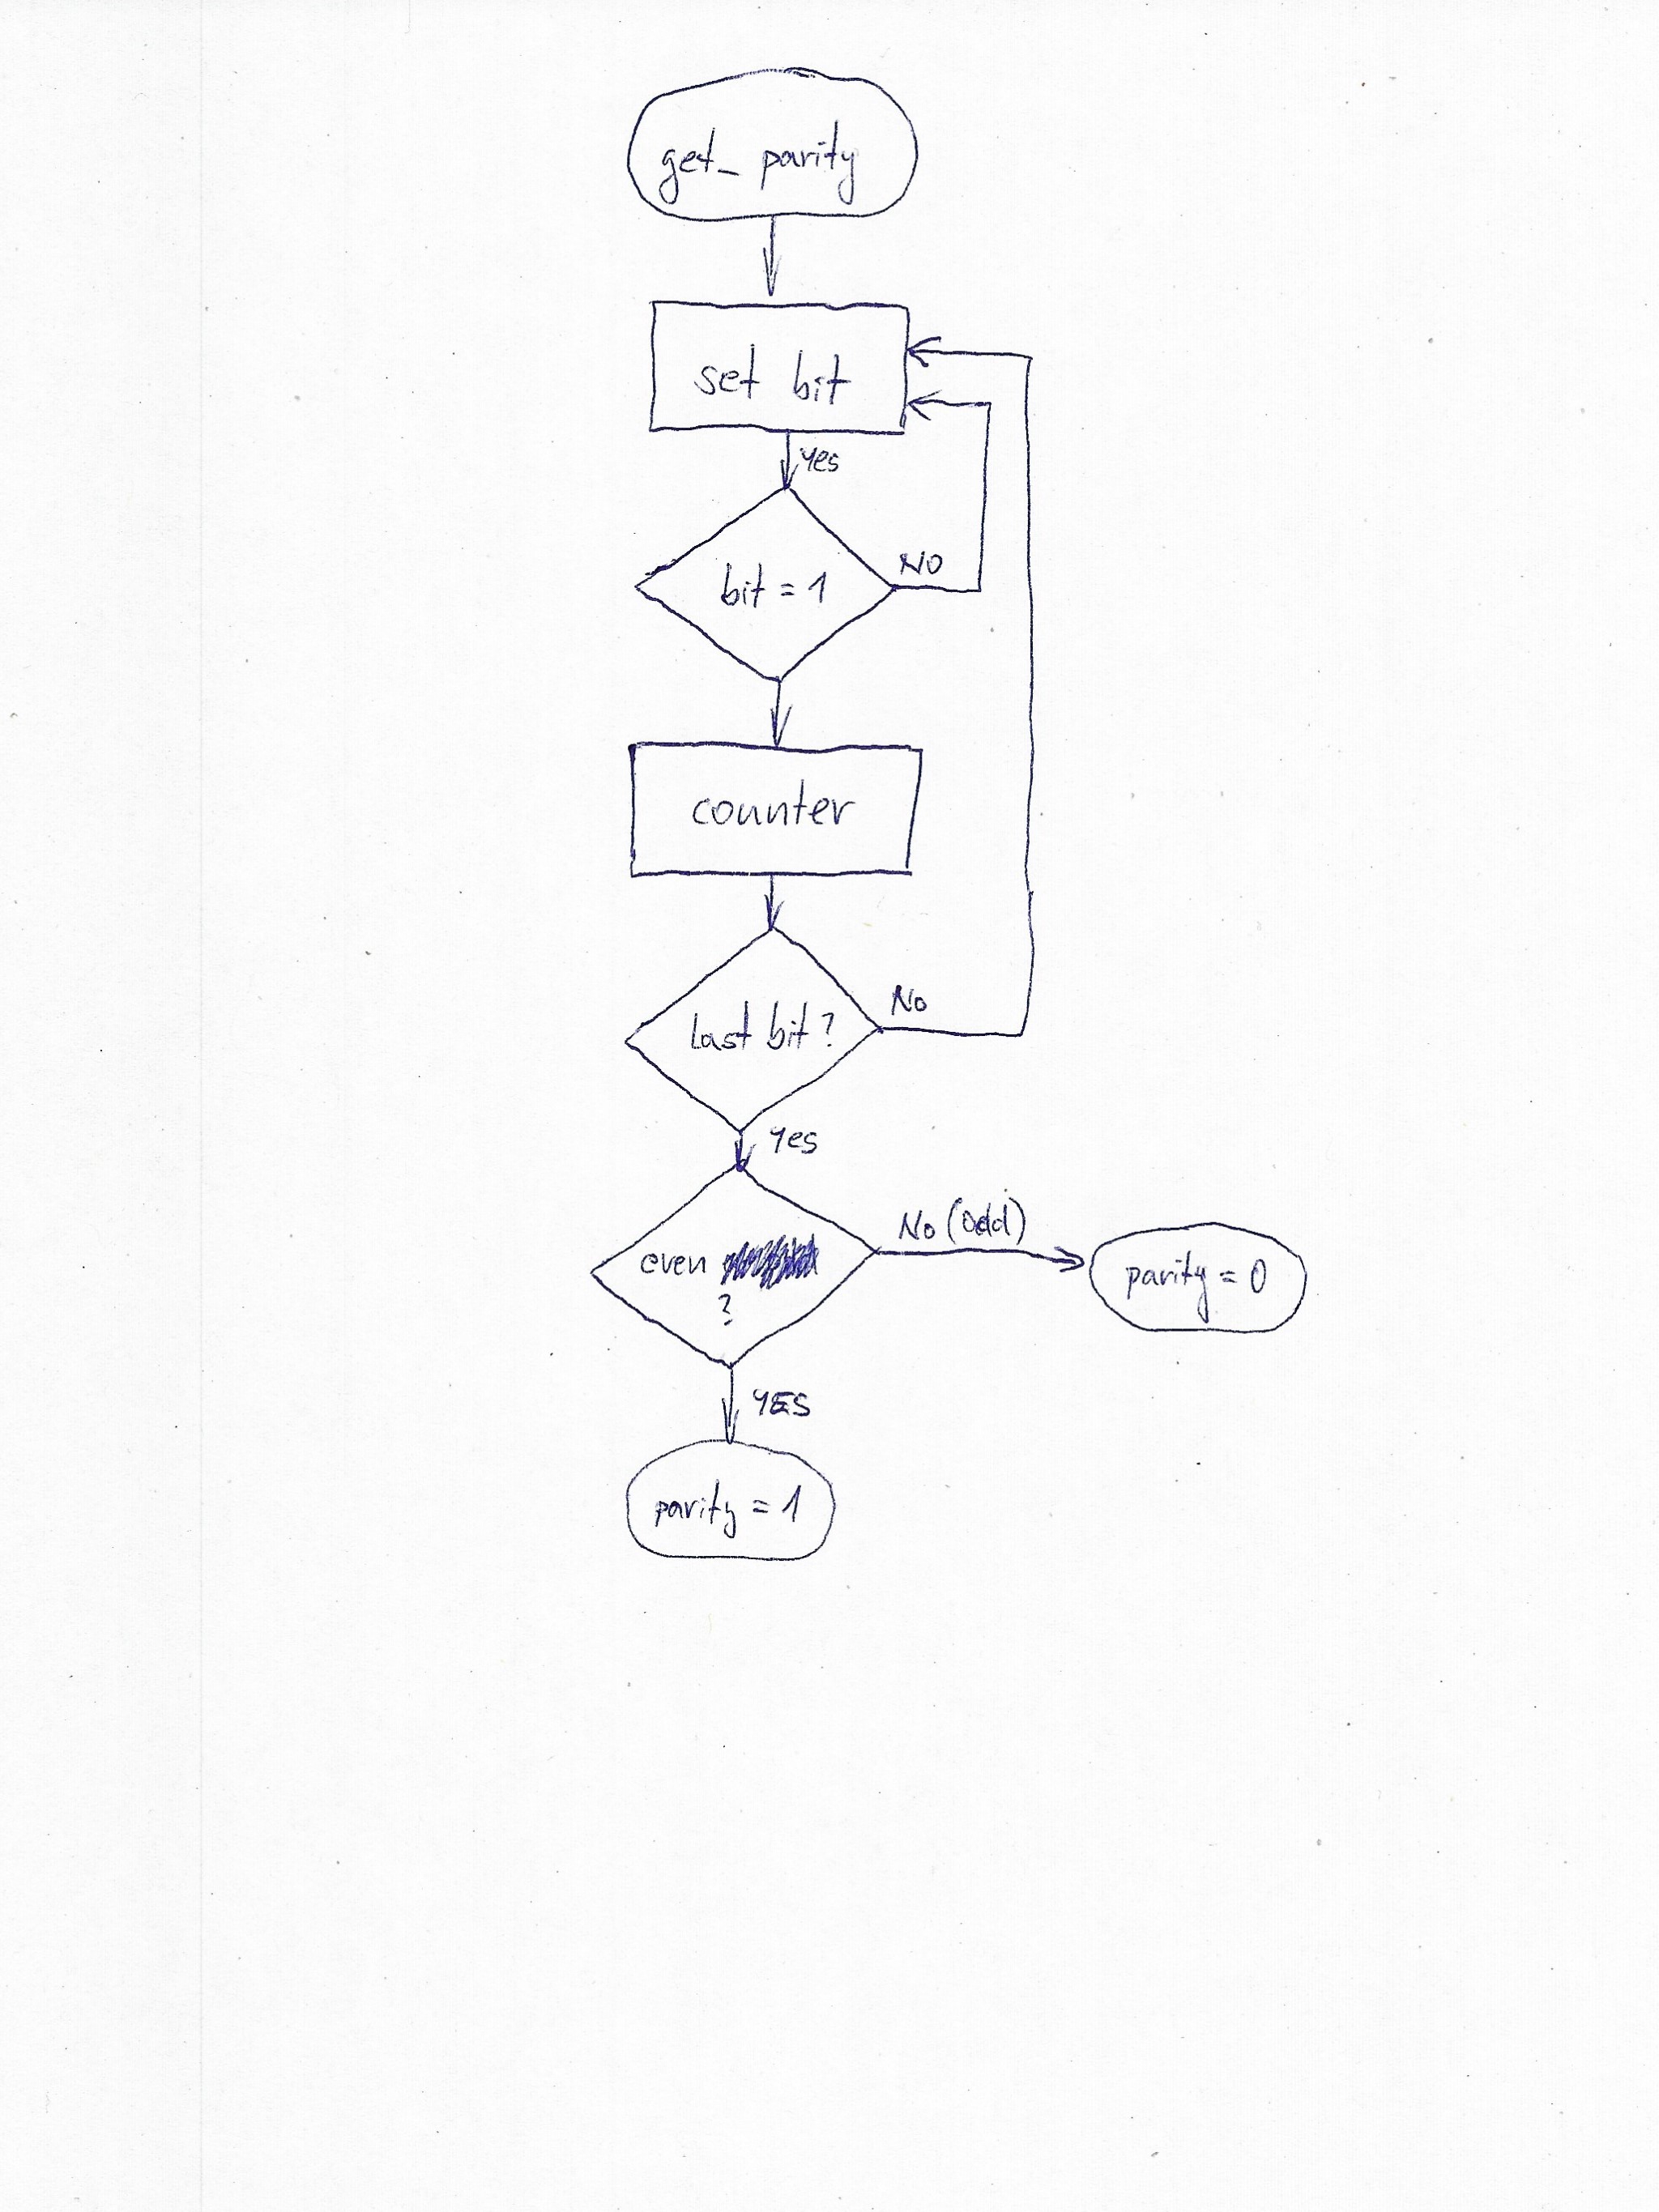 get_ parity
set bit
Yes
bit = 1
NO
counter
Last bit ?
No
Yes
even
?
No (odd)
parity = 0
YES
parity = 1